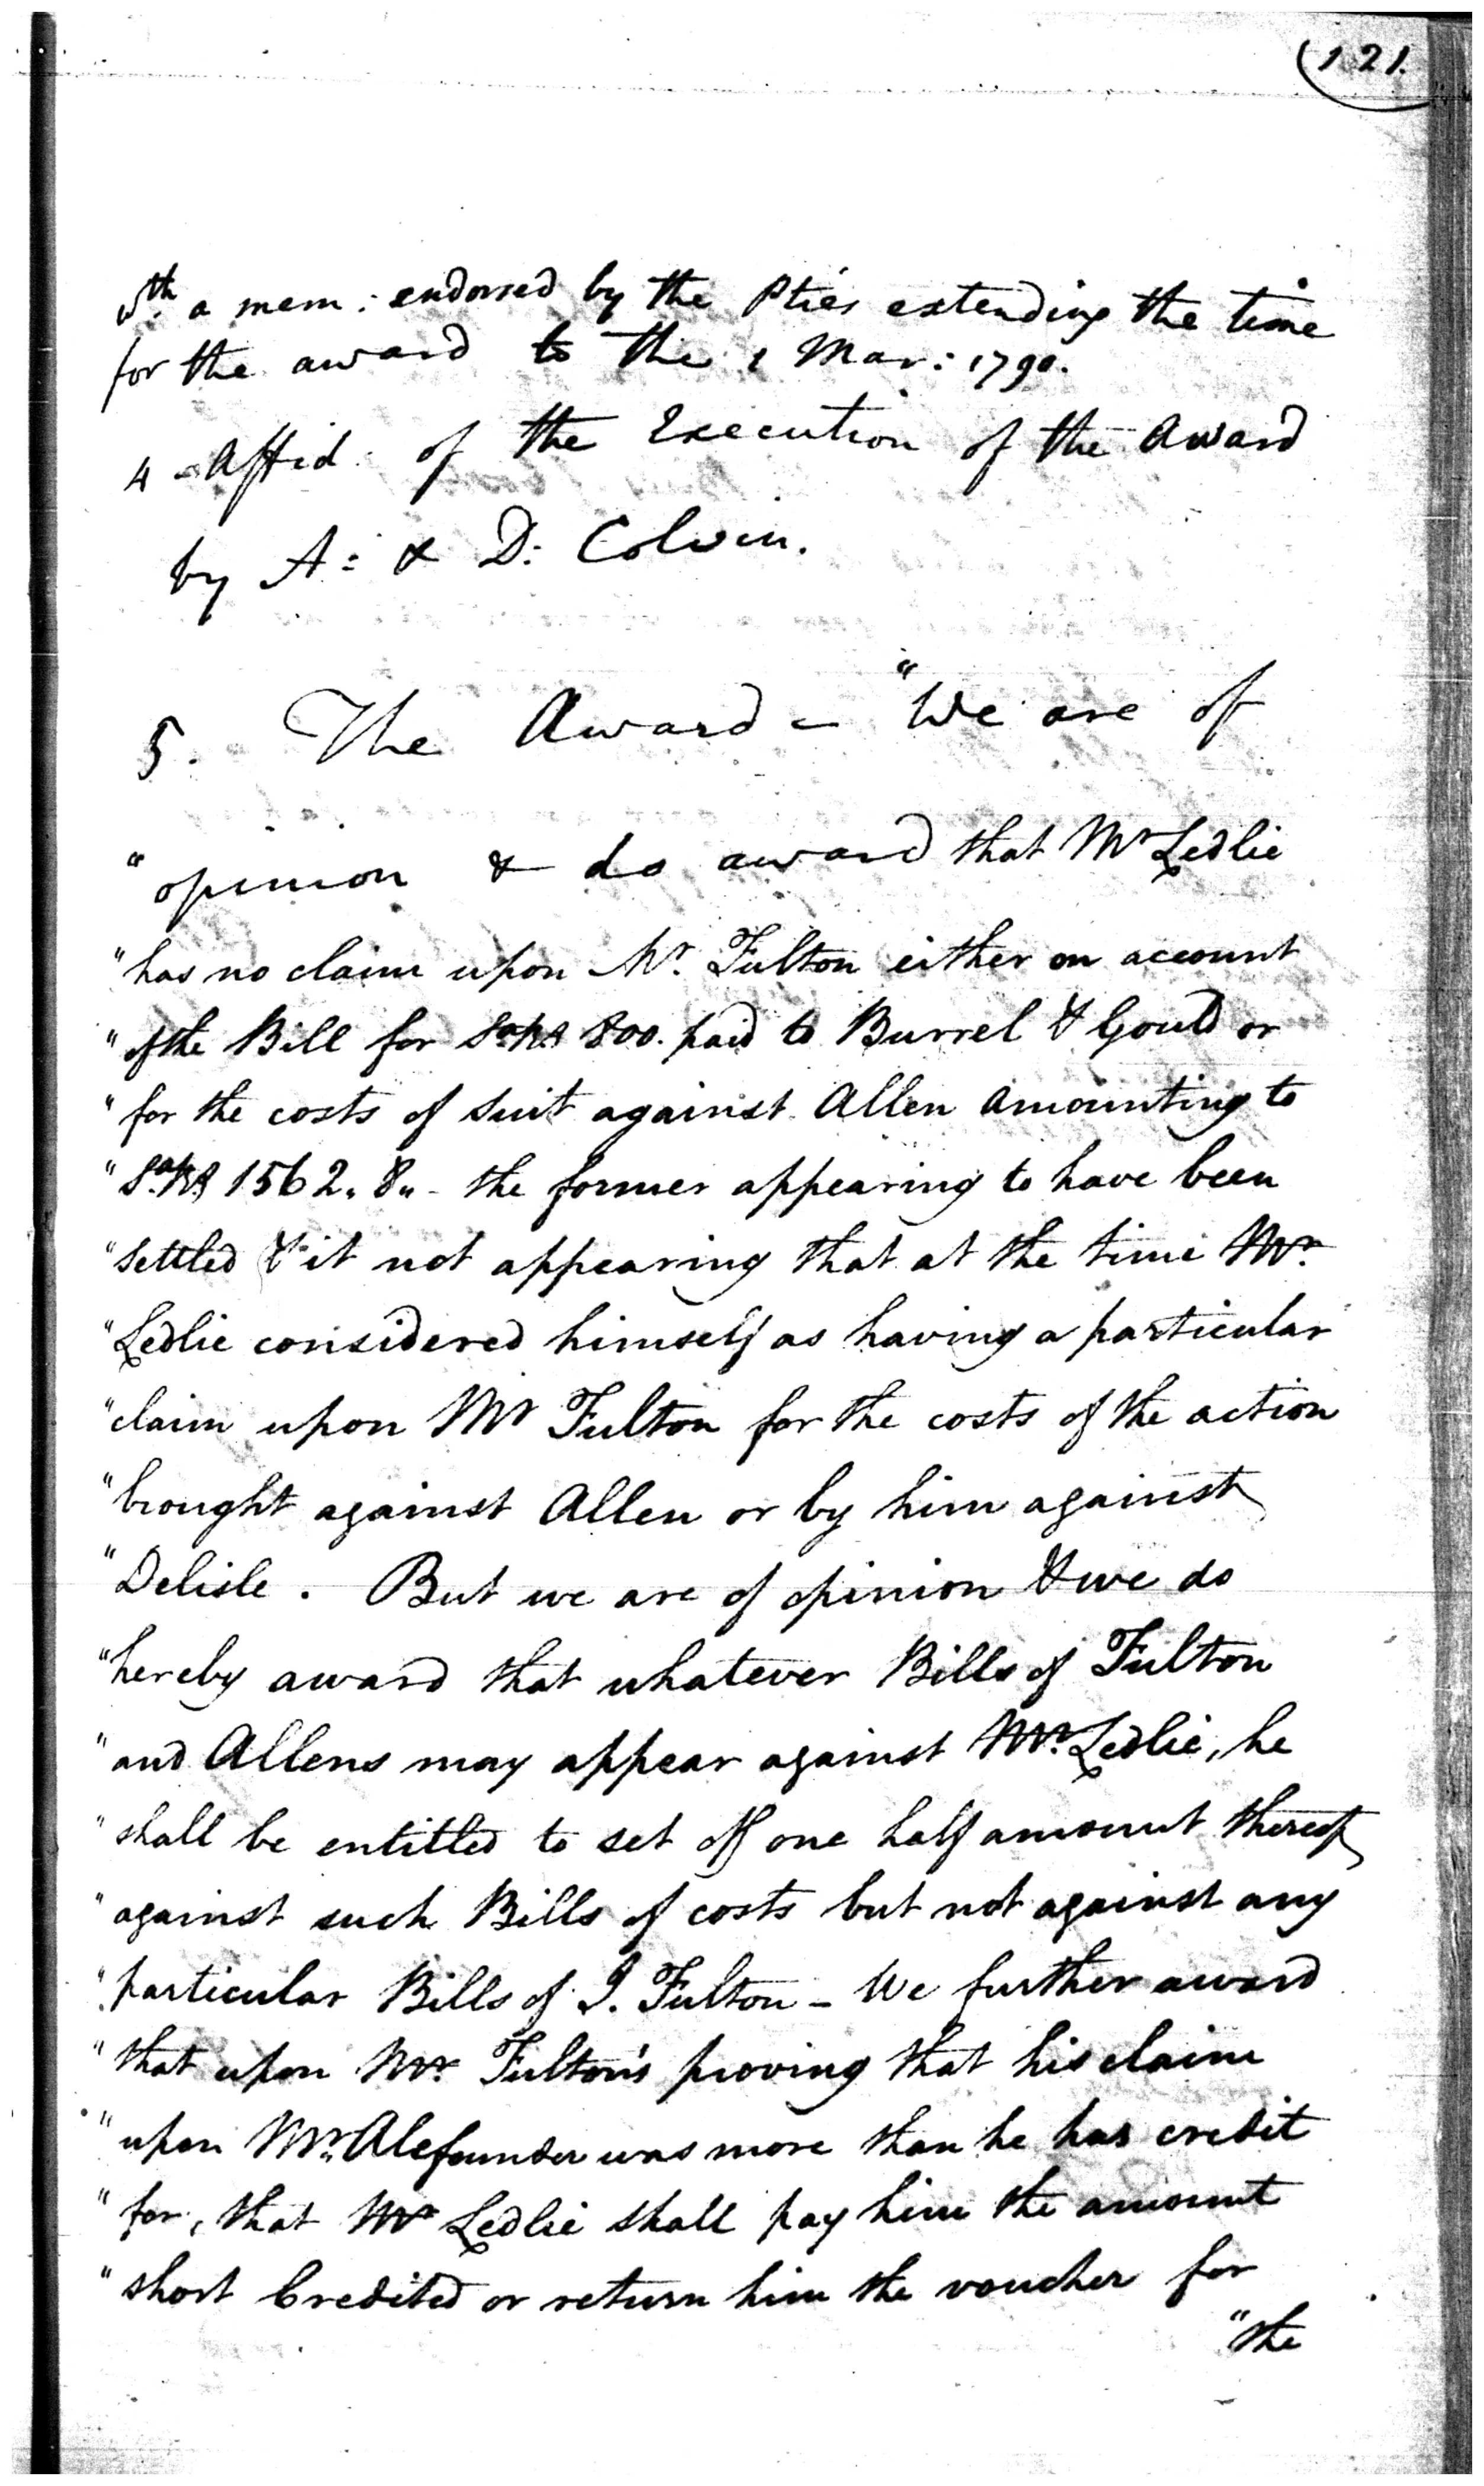 (121.
wth. a mem: endorsed by the Pties extending the time
for the award to the 1 Mar: 1790.
4 - Affid: of the Execution of the Award
by A: & D: Colvin.
5. The Award - "We are of
"opinion & do award that Mr Ledlie
"has no claim upon Mr. Fulton either on account
"of the Bill for Sa.Rs 800. paid to Burrel & Gould or
"for the costs of suit against Allen amounting to
"Sa.Rs 1562.8.. - the former appearing to have been
"settled & it not appearing that at the time Mr.
"Ledlie considered himself as having a particular
"claim upon Mr Fulton for the costs of the action
"brought against Allen or by him against
"Delisle. But we are of opinion & we do
"hereby award that whatever Bills of Fulton
"and Allens may appear against Mr. Ledlie, he
"shall be entitled to set off one half amount thereof
"against such Bills of costs but not against any
"particular Bills of J. Fulton - We further award
"that upon Mr. Fulton's proving that his claim
"upon Mr. Alefounder was more than he has credit
"for, that Mr Ledlie shall pay him the amount
"short Credited or return him the voucher for
"the